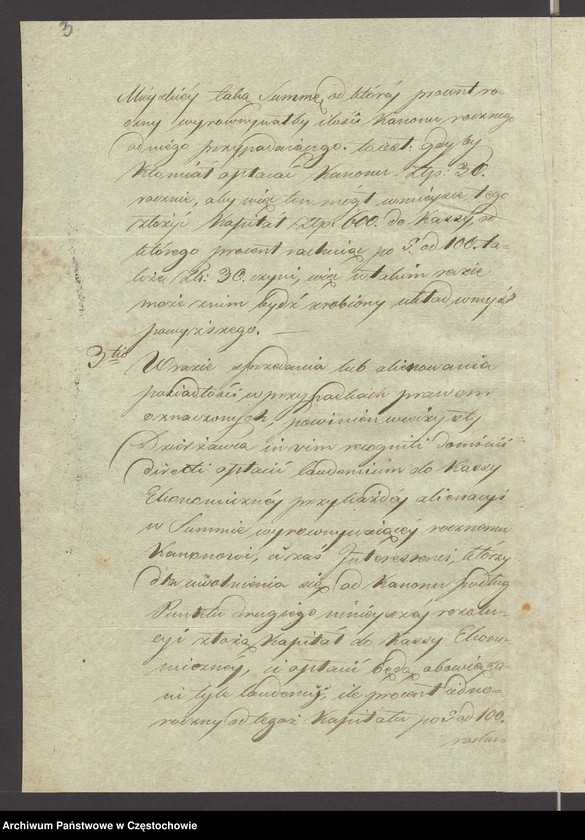 3
Mieyskiey taką Summę, od którey procent ro-
czny wyrównywałby ilości Kanonu rocznego
od niego przypadaiącego. to iest: gdy by
Kto miał opłacać Kanonu Złp: 30.
rocznie, aby więc ten mógł w mieysce tego
złożyć Kapitał Złp. 600. do Kassy, od
którego procent rachuiąc po 5. od 100. ta-
kże Złt: 30. czyni, więc w takim razie
może z nim bydź zrobiony układ w myśl
powyższego. —
3tio W razie sprzedania lub alienowania
posiadłości w przypadkach prawem
oznaczonych, powinien wieczysty
Dzierżawca in vim recogniti Dominii
directi opłacić laudemium do Kassy
Ekonomiczney przy każdey alienacyi
w Summie wyrównywaiącey rocznemu
Kanonowi, a zaś Interessenci, którzy
dla uwolnienia się od Kanonu podług
Punktu drugiego ninieyszey rezolu-
cyi złożą Kapitał do Kassy Ekono-
miczney, ci opłacić będą obowiąza-
ni tyle laudemii, ile procent iedno-
roczny od tegoż Kapitału po 5 od 100.
rachu
Archiwum Państwowe w Częstochowie